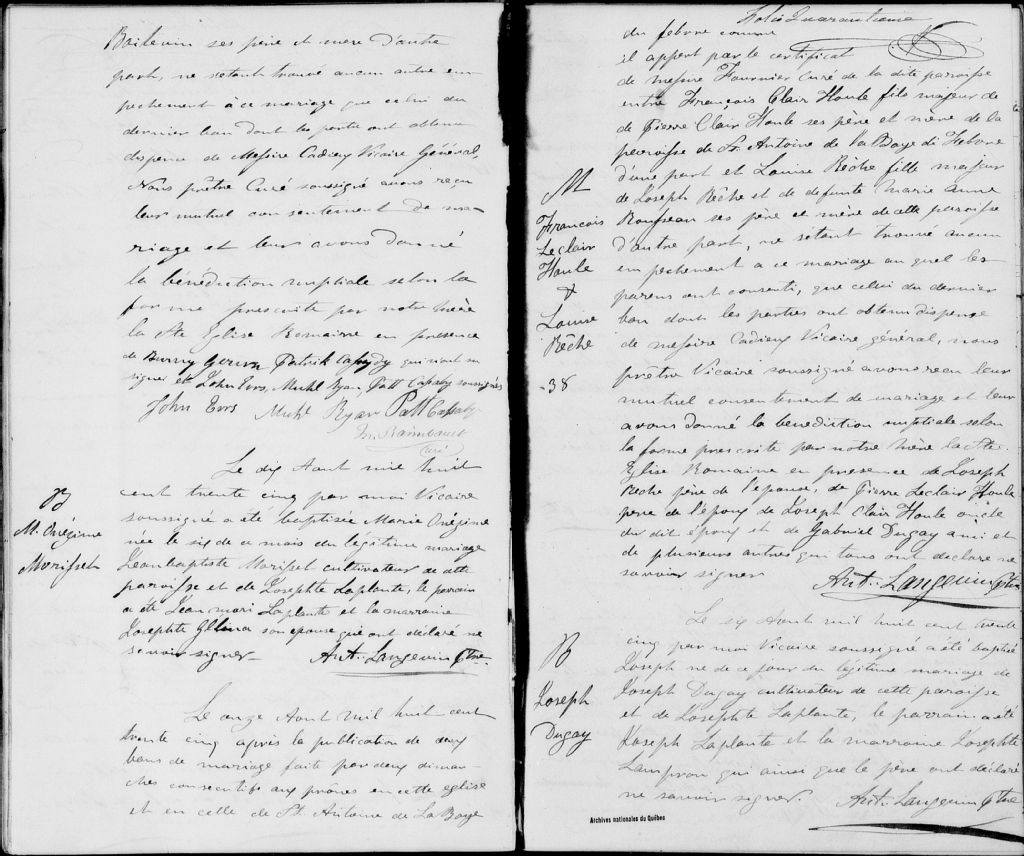 Boilevin ses père et mère d'autre
part, ne s'étant trouvé aucun autre em-
pechement à ce mariage que celui du
dernier ban dont les partis ont obtenu
dispense de Messire Cadieux Vicaire Général,
Nous prêtre Curé soussigné avons reçu
leur mutuel consentement de ma-
riage et leur avons donné
la bénédiction nuptiale selon la
forme prescrite par notre mère
la Ste Eglise Romaine en presence
de Patrik qui n'ont su
signer et John Eors, Michl Ryan, Patt Cassaty soussignés
John Eors Michl Ryan Patt Cassaty
Raimbault
Curé
B
M. Onégime
Morisset
Le dix Aout mil huit
cent trente cinq par moi Vicaire
soussigné a été baptisée Marie Onégime
née le six de ce mois du légitime mariage
Jean baptiste Morisset cultivateur de cette
paroisse et de Josephte Laplante, le parrain
a été Jean mari Laplante et la marraine
Josephte son epouse qui ont déclaré ne
savoir signer Ant. Langevin Ptre.
Le onze Aout mil huit cent
trente cinq après la publication de deux
bans de mariage faite par deux diman-
ches consecutifs aux prônes en cette eglise
et en celle de St. Antoine de La Baye
Folio Quarantieme
du febvre comme
il appert par le certificat
de messire Fournier Curé de la dite paroisse
entre François Clair Houle fils majeur de
de Pierre Clair Houle ses père et mère de la
paroisse de St. Antoine de la Baye du Febvre
d'une part et Louise Rêche fille majeur
de Joseph Rêche et de defunte marie Anne
Rousseau ses père et mère de cette paroisse
d'autre part, ne s'étant trouvé aucun
em pechement a ce mariage au quel les
parens ont consenti, que celui du dernier
ban dont les parties ont obtenu dispense
de messire Cadieux Vicaire général, nous
prêtre Vicaire soussigné avons reçu leur
mutuel consentement de mariage et leur
avons donné la benediction nuptiale selon
la forme prescrite par notre mère la Ste.
Eglise Romaine en presence de Joseph
Rêche père de l'epouse, de Pierre Leclair Houle
pere de l'époux de Joseph Clair Houle oncle
du dit époux et de Gabriel Dugay ami et
de plusieurs autres qui tous ont déclaré ne
savoir signer Ant. Langevin Ptre
M
François
Leclair
Houle
&
Louise
Rêche
-38
Le six Aout mil huit cent trente
cinq par moi Vicaire soussigné a été baptisé
Joseph né de ce jour du légitime mariage de
Joseph Dugay cultivateur de cette paroisse
et de Josephte Laplante, le parrain a été
Joseph Laplante et la marraine Josephte
Lampron qui ainsi que le père ont déclaré
ne savoir signer. Ant. Langevin Ptre
B
Joseph
Dugay
Archives nationales du Québec